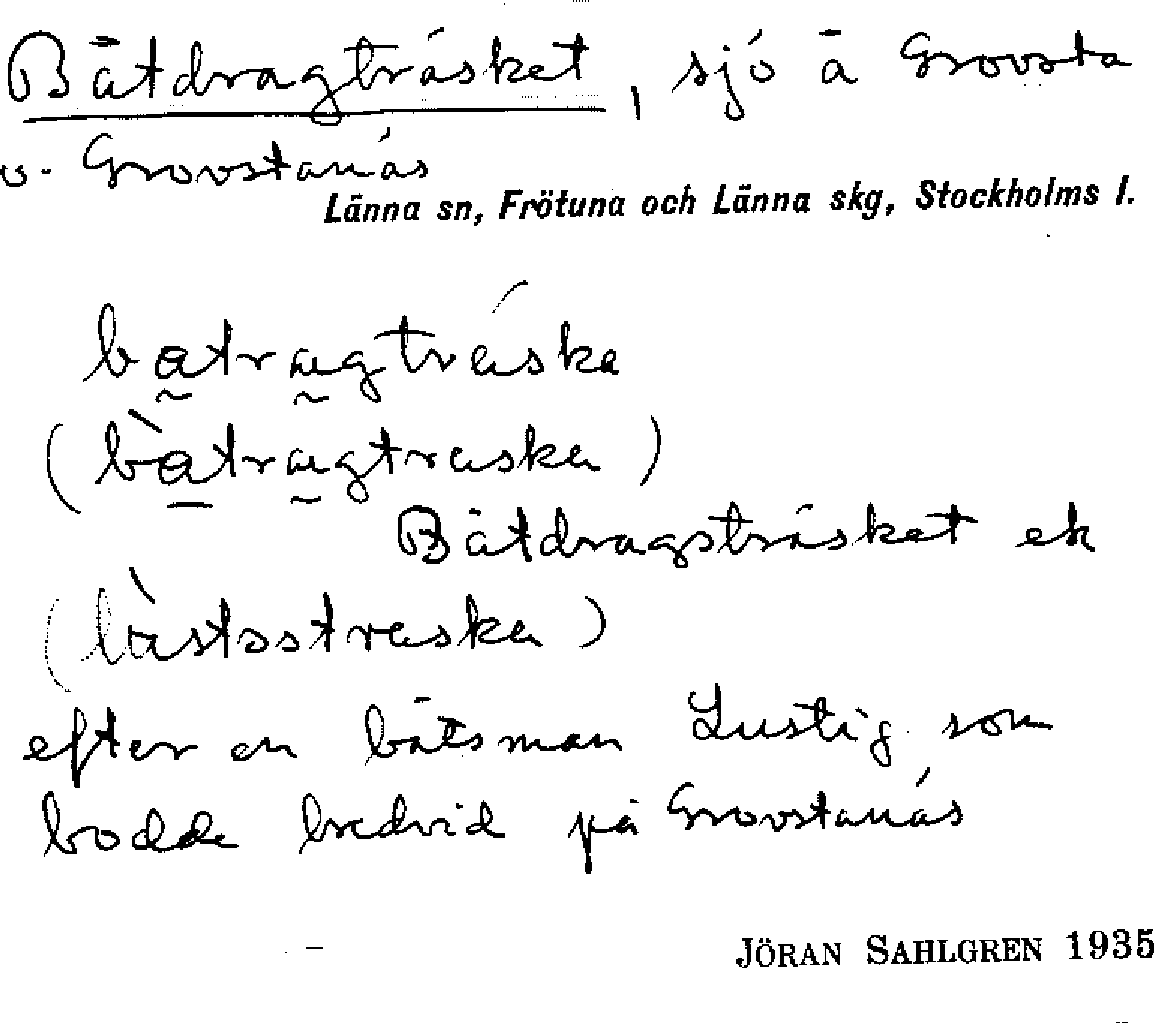 Båtdragträsket, sjö å Grovsta
o. Grovstanäs
Länna sn, Frötuna och Länna skg, Stockholms l.
batragträske
(bàtragtræsken)
Båtdragsträsket ek
(làstsstræsken)
efter en båtsman Lustig som
bodde bredvid på Grovstanäs
JÖRAN SAHLGREN 1935